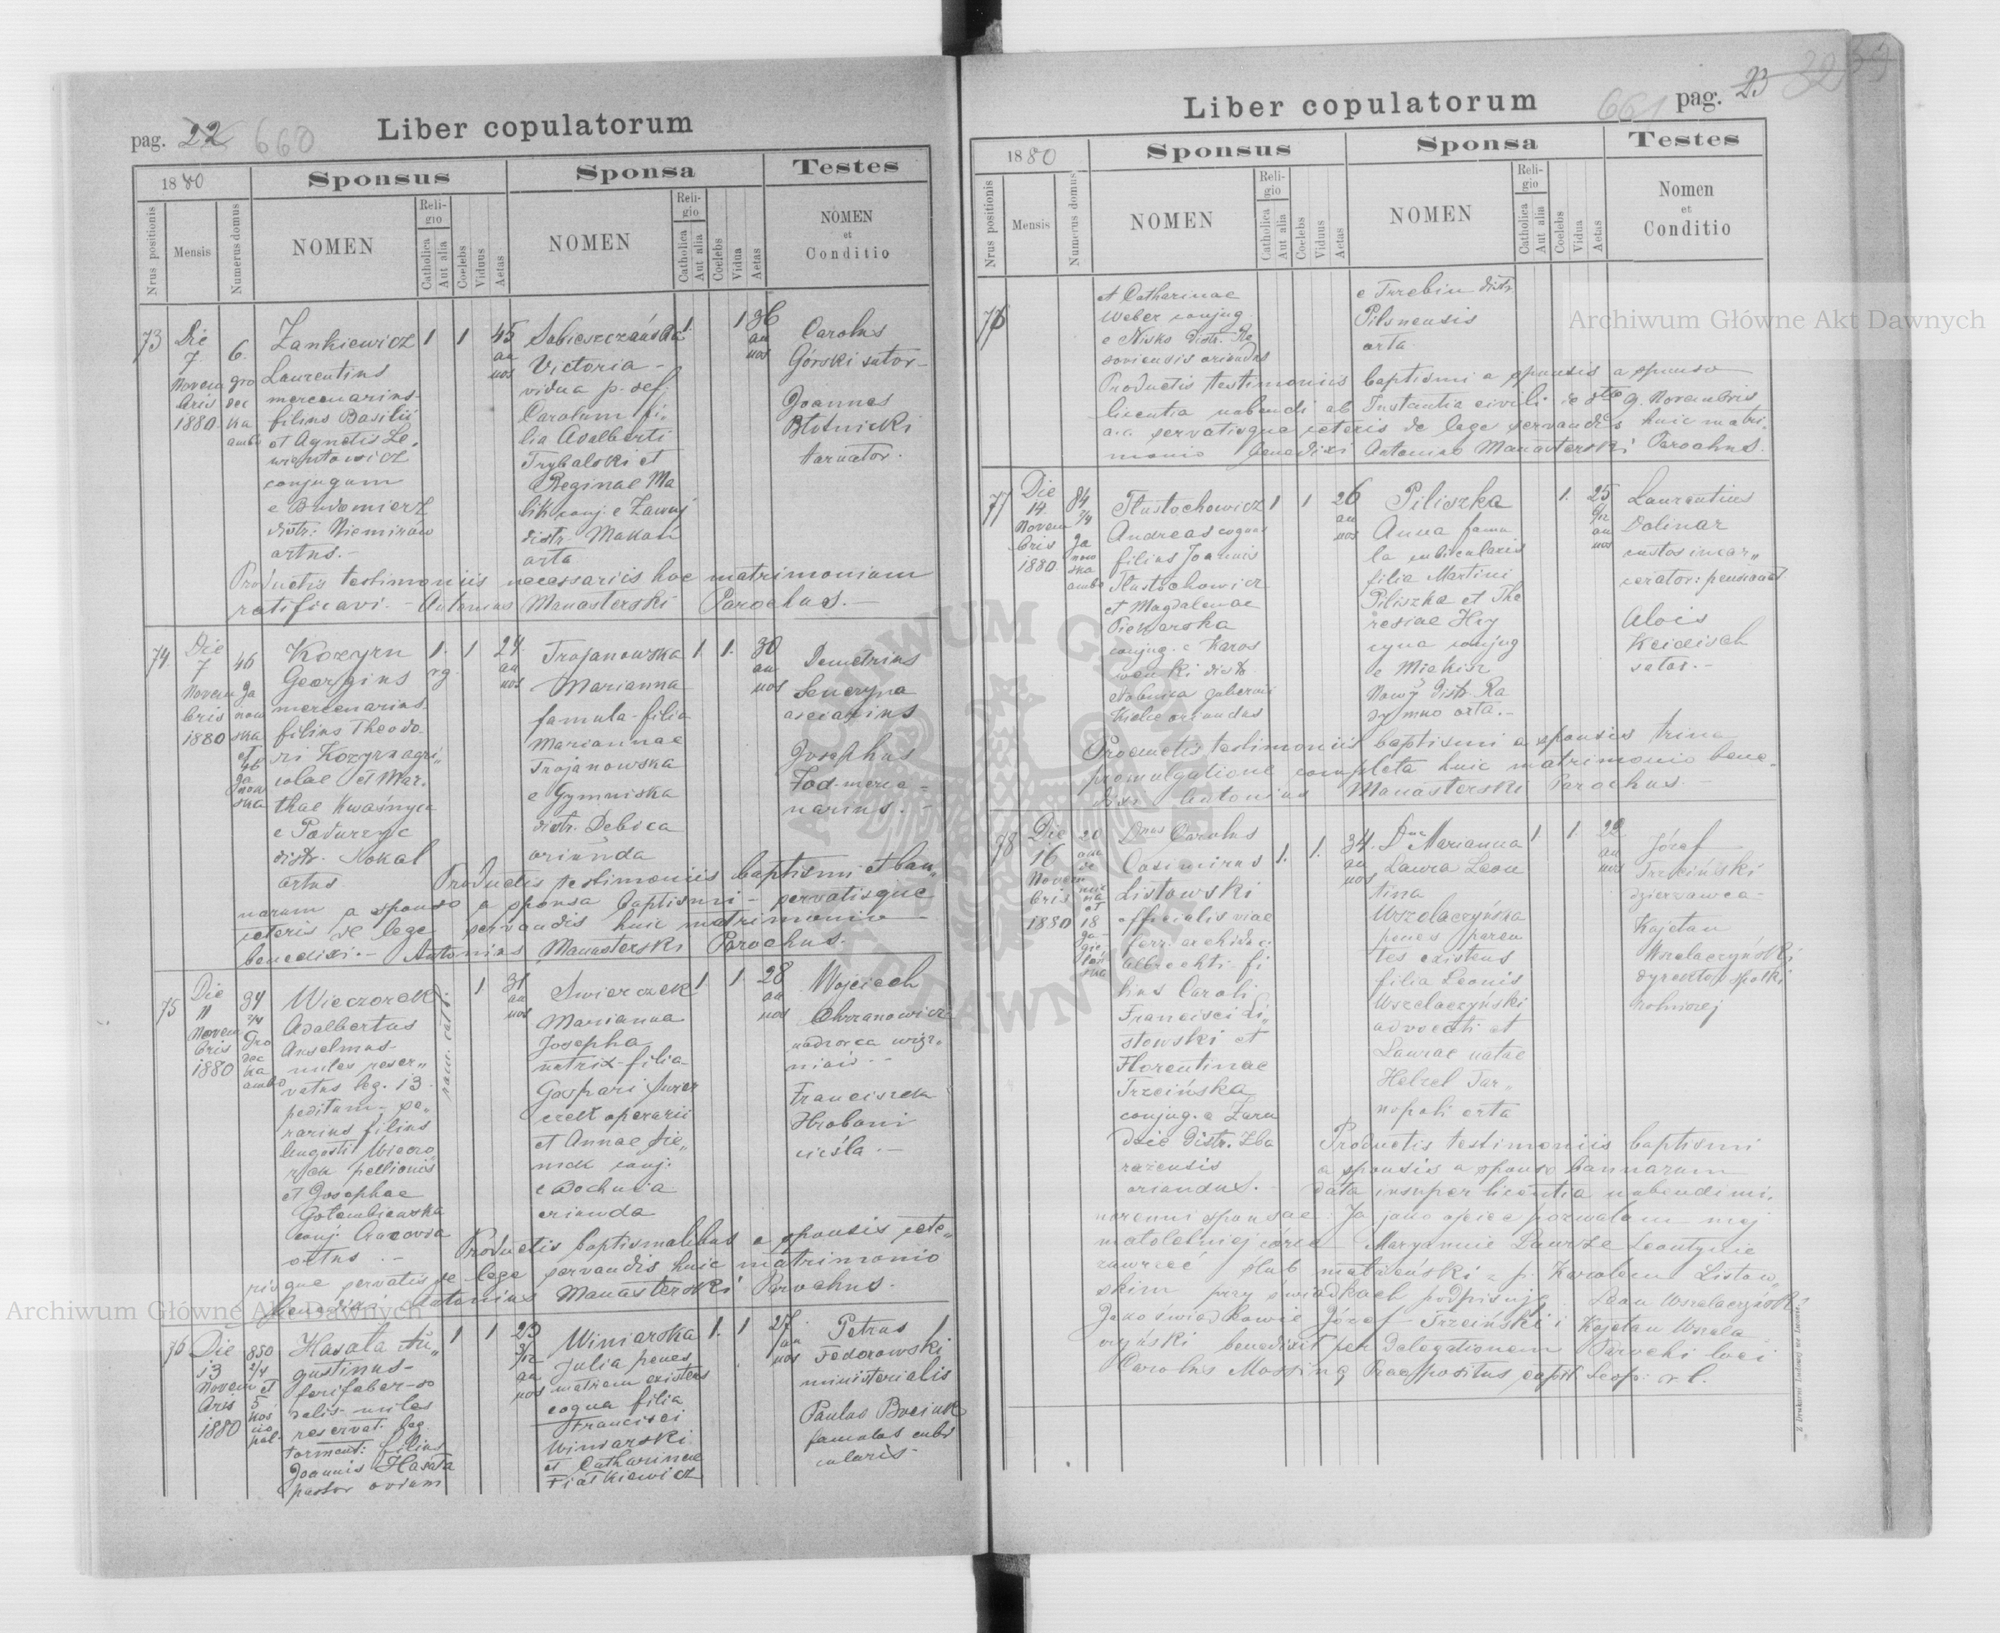 pag. 22 660
Liber copulatorum
1880
Sponsus
Sponsa
Testes
Nrus positionis
Mensis
Numerus domus
NOMEN
Religio
Catholica
Aut alia
Coelebs
Viduus
Aetas
NOMEN
Religio
Catholica
Aut alia
Coelebs
Vidua
Aetas
NOMEN
et
Conditio
73
Die
7
Novem
bris
1880
6
gro
dec
ka
ambo
Zankiewicz
Laurentius
mercenarius
filius Basilii
et Agnetis Le
conjugum
distr. Niemirów
ortus.-
1
1
45
an
nos
Victoria -
vidua p. def.
Carolum fi
lia Adalberti
Trybalski et
Reginae Ma
distr. Makań
orta
1
1
36
an
nos
Carolus
Górski sutor -
Joannes
Błotnicki
tornator.
Productis testimoniis necessariis hoc matrimonium
ratificavi. - Antonius Manasterski Parochus. -
74
Die
7
Novem
bris
1880
46
Ja
now
ska
et
46
Ja
now
ska
Kozyrn
Georgius
mercenarius
filius Theodo
ri Kozyrn agri
colae et Mar
thae Kwaśnyca
distr. Sokal
ortus
1.
rg.
1
24.
an
nos
Trojanowska
Marianna
famula - filia
Mariannae
Trojanowska
e Gymniska
distr. Debica
oriunda
1
1.
30
an
nos
Demetrius
Seneryna
asciarius
Josephus
Fod. merce -
narius. -
Productis testimoniis baptismi et ban
norum a sponso a sponsa baptismi - servatisque
ceteris de lege servandis huic matrimonio
benedixi. - Antonius Manasterski Parochus.
75
Die
11
Novem
bris
1880
34
2/4
Gro
dec
ka
ambo
Wieczorek
Adalbertus
Anselmus -
miles reser
vatus leg. 13
peditum,
filius
Augusti Wieczo
rek pellionis
et Josephae
Gołembiowska
conj. Cracovia
ortus. -
rom. cath.
1
31
an
nos
Swierczek
Marianna
Josepha
nutrix - filia
Gaspari Swier
czek operarii
et Annae
conj.
e Bochnia
oriunda
1
1.
28
an
nos
Wojciech
Chrzanowicz
nadzorca więź
niów -
Franciszek
Hrabani
cieśla. -
Productis baptismalibus a sponsis cete
risque servatis de lege servandis huic matrimonio
benedixi Antonius Manasterski Parochus.
76
Die
13
Novem
bris
1880
880
2/4
et
5
Kos
cio
pal.
Hasała Au
gustinus -
ferifaber - so
dalis - miles
reservat. leg.
torment: filius
Joannis Hasała
pastor ovium
1
1
23
3/12
an
nos
Winiarska
Julia penes
matrem existens
coqua filia
Francisci
Winiarski
et Catharinae
Piątkiewicz
1.
1
27.
an
nos
Petrus
Fedorowski
ministerialis
Paulus Bociuk
famulus cubi
cularis -
Liber copulatorum
661 pag. 23
1880
Sponsus
Sponsa
Testes
Nrus positionis
Mensis
Numerus domus
NOMEN
Religio
Catholica
Aut alia
Coelebs
Viduus
Aetas
NOMEN
Religio
Catholica
Aut alia
Coelebs
Vidua
Aetas
Nomen
et
Conditio
76
et Catherinae
Weber conjug.
e Nisko Distr. Rze
soviensis oriundus
e Trzebin distr.
Pilsnensis
orta
Productis testimoniis baptismi a sponsis a sponso
licentia nubendi ab Instantia civili de dto 9. Novembris
a.c. servatisque ceteris de lege servandis huic matri
monio benedixi Antonius Manasterski Parochus.
77
Die
14.
Novem
bris
1880
84
2/4
Ja
now
ska
ambo
Tłustochowicz
Andreas coquus
filius Joannis
Tłustochowicz
et Magdalenae
Piekarska
conjug. e Karas
oriundus
1
1
26
an
nos
Piliszka
Anna famu
la cubicularis
filia Martini
Piliszka et The
resiae Hry
cyna conjug
e Miękisz
Nowy distr. Ra
dymno orta. -
1.
25
6/12
an
nos
Laurentius
Dolinar
custos incar
cerator: pensionat
Alois
Keidisch
sutor. -
Productis testimoniis baptismi a sponsis trina
promulgatione completa huic matrimonio bene
dixi Antonius Manasterski Parochus -
78
Die
16
Novem
bris
1880
20
et
18
Ja
gie
loń
ska
Dnus Carolus
Casimirus
Listowski
officialis viae
ferr. archiduc:
Albrechti fi
lius Caroli
Francisci Li
stowski et
Florentinae
Trzcińska
conjug. e Zaru
dzie Distr. Zba
razensis
oriundus. -
1.
1.
34.
an
nos
Dna Marianna
Laura Leon
tina
Wszelaczyńska
penes paren
tes existens
filia Leonis
Wszelaczyński
advocati et
Laurae natae
Helzel Tar
nopoli orta
1
1.
22
an
nos
Józef
Trzciński
dzierżawca -
Kajetan
Wszelaczyński
dyrektor spółki
rolniczej
Productis testimoniis baptismi
a sponsis a sponso bannorum
data insuper licentia nubendi mi
norenni sponsae: Ja jako ojciec pozwalam mej
małoletniej córce Maryannie Laurze Leontynie
zawrzeć ślub małżeński z p. Karolem Listow
skim przy świadkach podpisuję Leon Wszelaczyński
Jako świadkowie Józef Trzciński i Kajetan Wszela
czyński benedixit per Delegationem Parochi loci
Carolus Mossing Praepositus capit. Leop. r. l.
Z Drukarni Ludowej we Lwowie.
Archiwum Główne Akt Dawnych
Archiwum Główne Akt Dawnych
ARCHIWUM GŁÓWNE AKT DAWNYCH